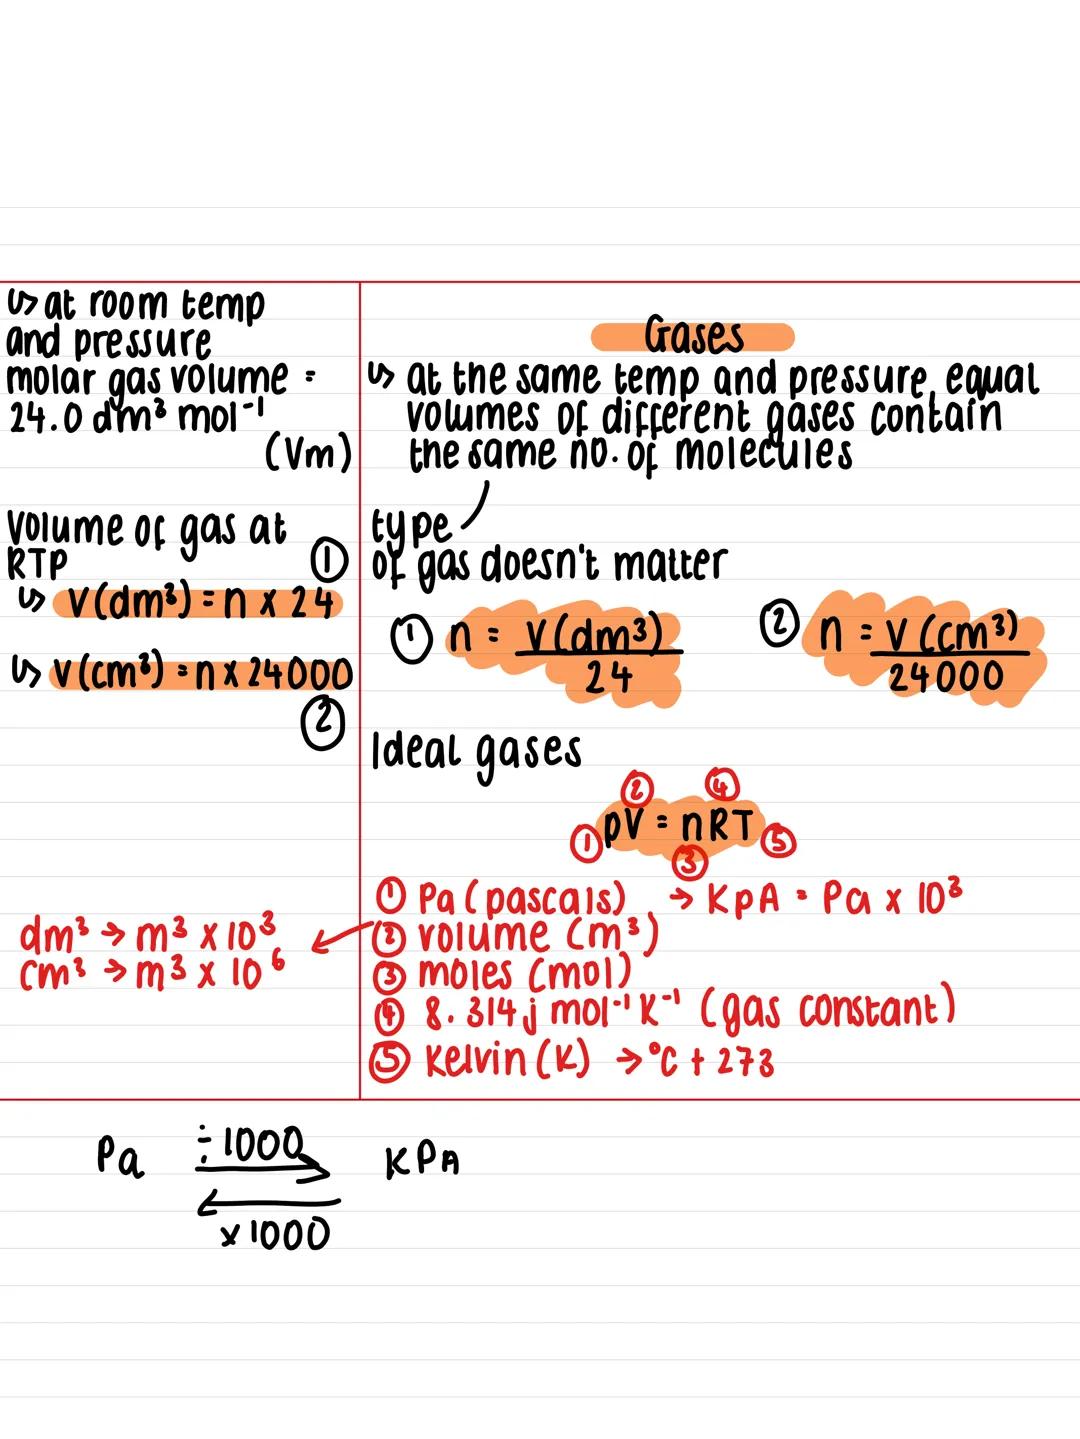 ↳ at room temp
and pressure
molar gas volume =
24.0 dm³ mol⁻¹
(Vm)
Volume of gas at
RTP ①
↳ V(dm³) = n x 24
↳ V(cm³) = n x 24000
②
Gases
↳ at the same temp and pressure equal
volumes of different gases contain
the same no. of molecules
type
of gas doesn't matter
① n = V(dm³)
24
② n = V(cm³)
24000
Ideal gases
② ④
① pV = nRT ⑤
③
① Pa (pascals) → KpA = Pa x 10³
② volume (m³)
③ moles (mol)
④ 8.314j mol⁻¹ K⁻¹ (gas constant)
⑤ Kelvin (K) → °C + 273
dm³ → m³ x 10³
cm³ → m³ x 10⁶
Pa ÷1000 KPA
x1000